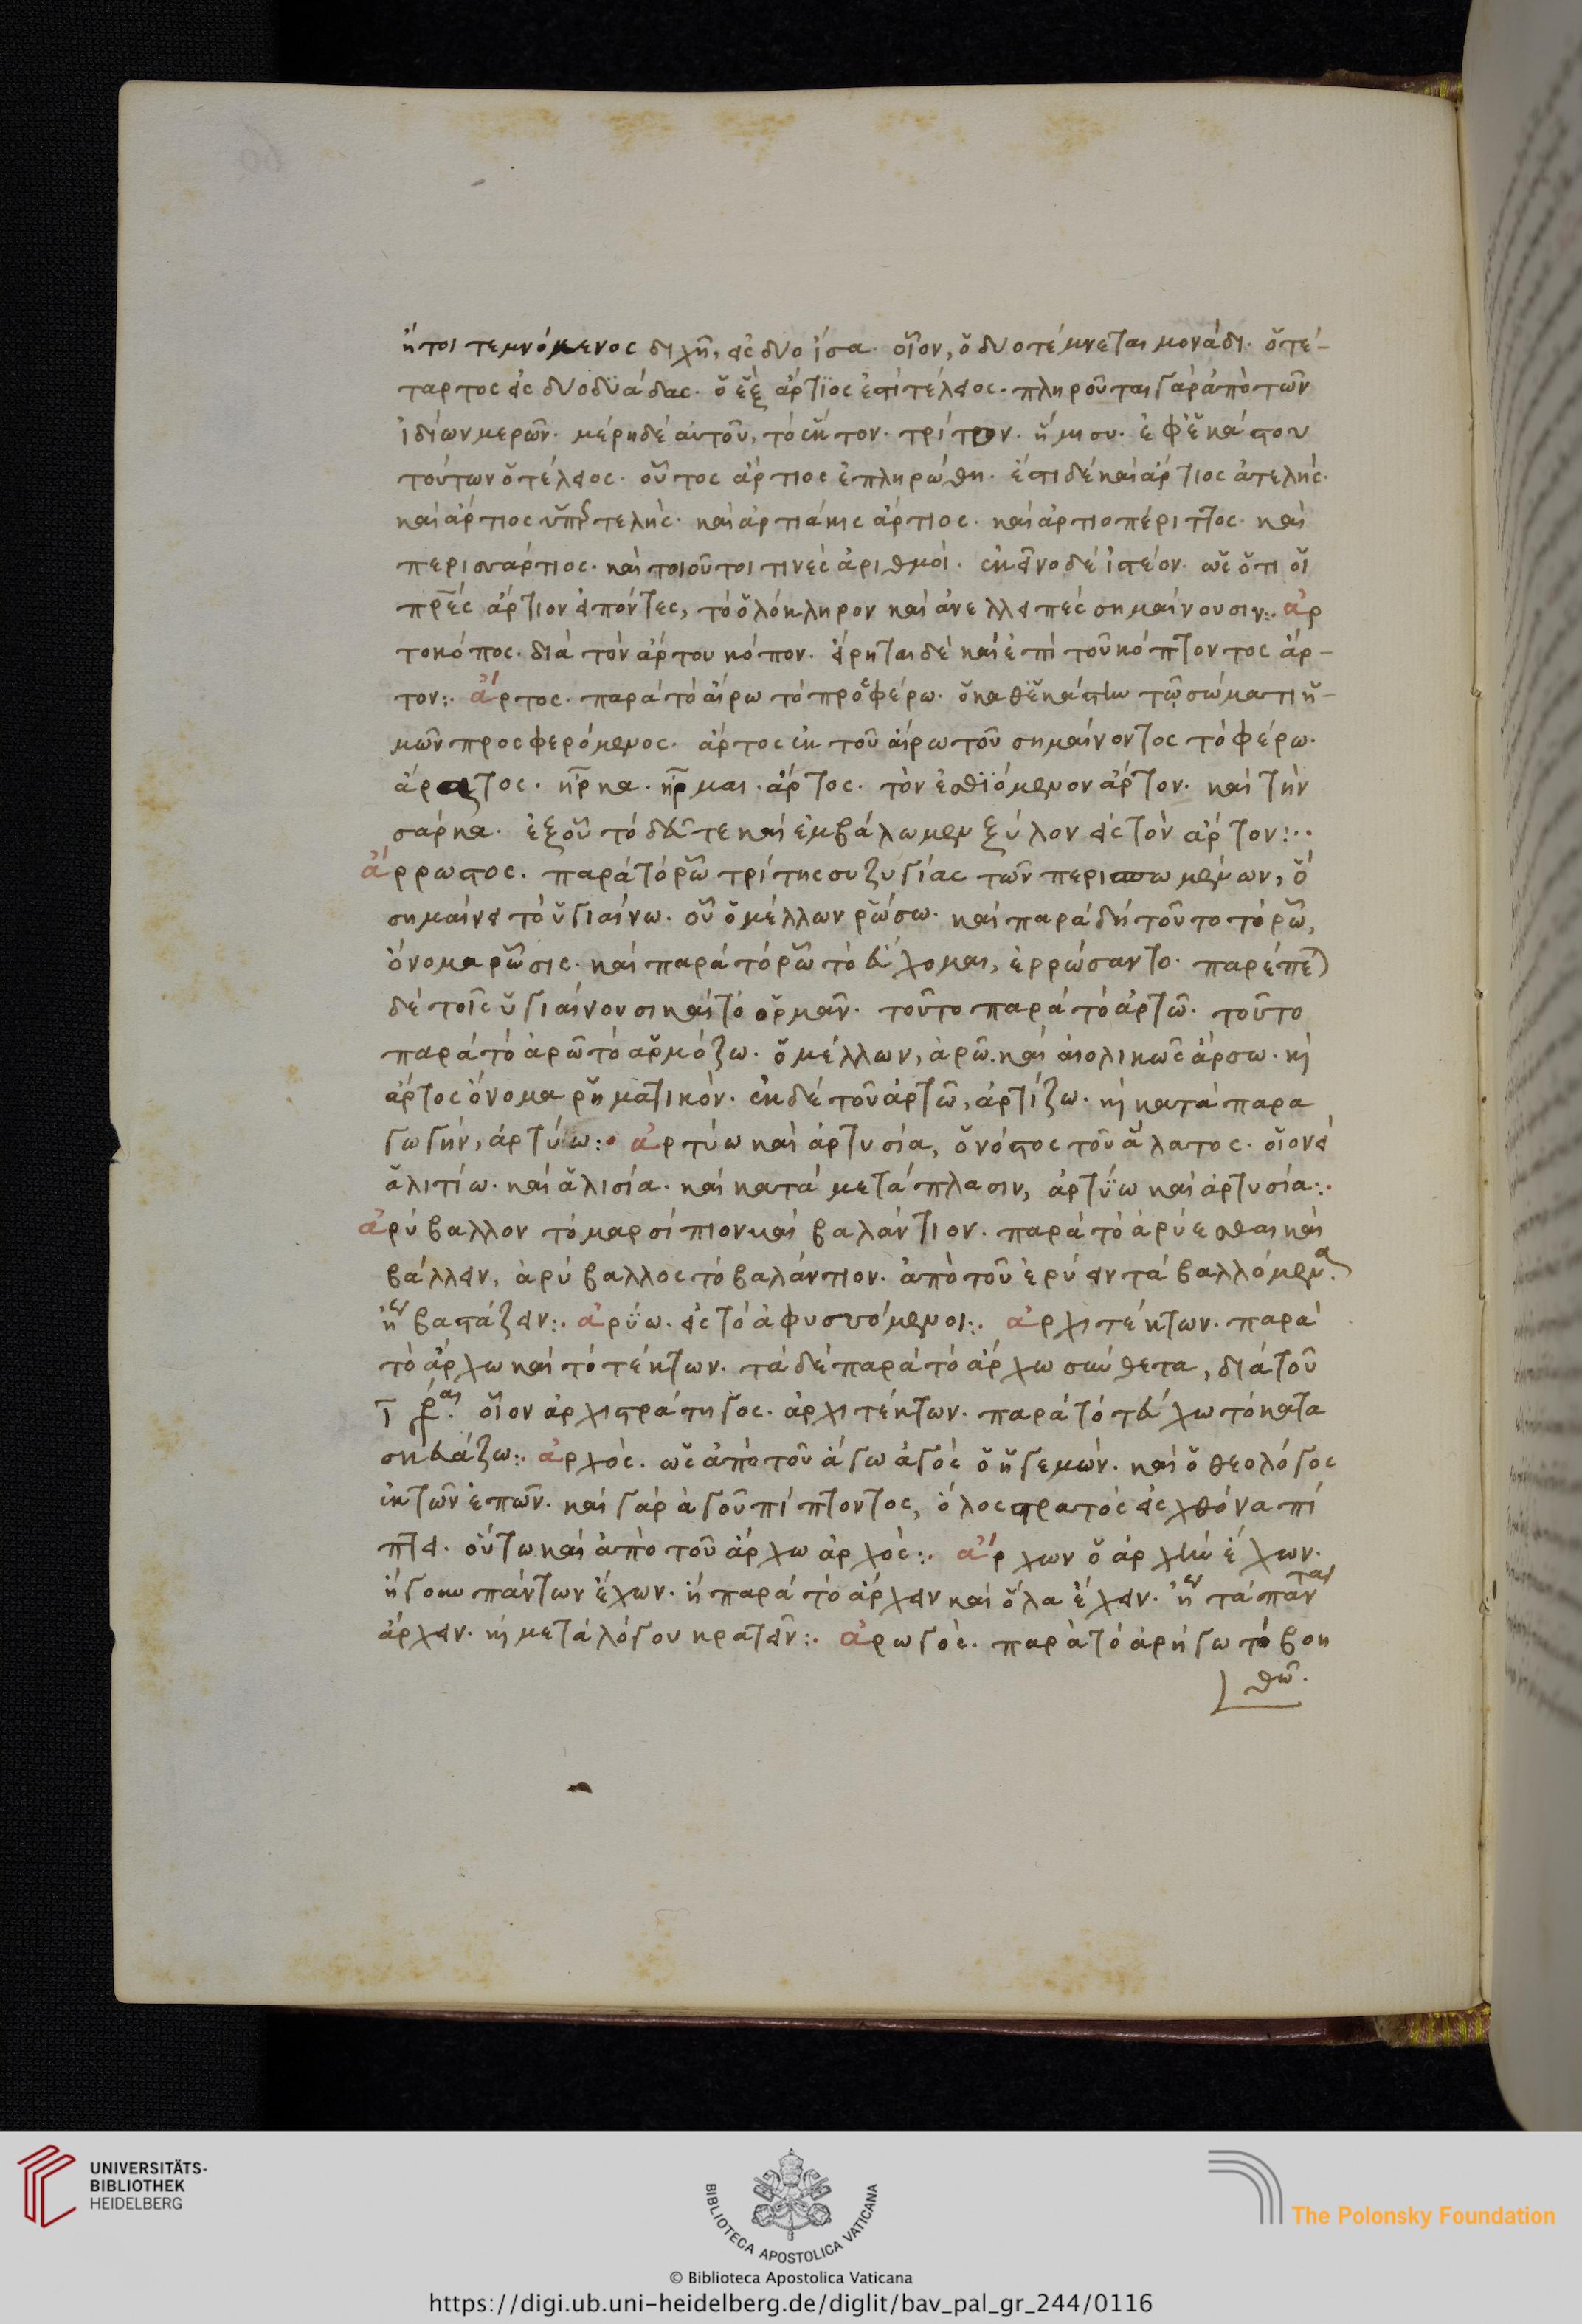 ήτοι τεμνόμενος διχῆ, εἰς δύο ἴσα. οἷον, ὁ δυο τέμνεται μονάδι. ὁ τέ-
ταρτος εἰς δυο δϋάδας. ὁ ἓξ ἄρτϊος ἐστὶ τέλειος. πληροῦται γὰρ ἀπὸ τῶν
ἰδίων μερῶν. μέρη δὲ αὐτοῦ, τὸ ἕκτον. τρίτον. ἥμισυ. ἐφ' ἑκάστου
τούτων ὁ τέλειος. οὗτος ἄρτιος ἐπληρώθη. ἔστι δὲ καὶ ἄρτιος ἀτελής.
καὶ ἄρτιος ὑπερτελὴς. καὶ ἀρτιάκις ἄρτιος. καὶ ἀρτιοπέριττος. καὶ
περισσάρτιος. καὶ τοιοῦτοι τινὲς ἀριθμοὶ. ἐκεῖνο δὲ ἰστέον. ὡς ὅτι οἱ
πρ̅ες ἄρτιον εἰπόντες, τὸ ὁλόκληρον καὶ ἀνελλειπὲς σημαίνουσιν:. ἀρ
τοκόπος. διὰ τὸν ἄρτου κόπον. εἴρηται δὲ καὶ ἐπὶ τοῦ κόπτοντος ἄρ-
τον:. ἄρτος. παρὰ τὸ αἴρω τὸ προσφέρω. ὁ καθ' ἑκάστην τῷ σώματι ἡ-
μῶν προσφερόμενος. ἄρτος ἐκ τοῦ αἴρω τοῦ σημαίνοντος τὸ φέρω.
ἄρατος. ἦρκα. ἦρμαι. ἄρτος. τὸν ἐσθϊόμενον ἄρτον. καὶ τὴν
σάρκα. ἐξ οὗ τὸ δεῦτε καὶ ἐμβάλωμεν ξύλον εἰς τὸν ἄρτον:..
ἄρρωστος. παρὰ τὸ ῥῶ τρίτης συζυγίας τῶν περισπωμένων, ὃ
σημαίνει τὸ ὑγιαίνω. οὗ ὁ μέλλων ῥώσω. καὶ παρὰ δὴ τοῦτο τὸ ῥῶ,
ὄνομα ῥῶσις. καὶ παρὰ τὸ ῥῶ τὸ εὔχομαι, ἐρρώσαντο. παρέπε)
δὲ τοῖς ὑγιαίνουσι καὶ τὸ ὁρμᾶν. τοῦτο παρὰ τὸ ἀρτῶ. τοῦτο
παρὰ τὸ ἀρῶ τὸ ἁρμόζω. ὁ μέλλων, ἀρῶ. καὶ αἰολικῶς ἄρσω. κὶ
ἄρτος ὄνομα ῥηματικὸν. ἐκ δὲ τοῦ ἀρτῶ, ἀρτίζω. κὶ κατὰ παρα
γωγήν, ἀρτύω:. ἀρτύω καὶ ἀρτυσία, ὁ νόστος τοῦ ἅλατος. οἱονεὶ
ἁλιτίω. καὶ ἁλισία. καὶ κατὰ μετάπλασιν, ἀρτΰω καὶ ἀρτυσία:.
ἀρύβαλλον τὸ μαρσίπιον καὶ βαλάντιον. παρὰ τὸ ἀρύεσθαι καὶ
βάλλειν, ἀρύβαλλος τὸ βαλάντιον. ἀπὸ τοῦ ἐρύειν τὰ βαλλόμενα.
ἢν βαστάζειν:. ἀρΰω. εἰς τὸ ἀφυσσόμενοι:. ἀρχιτέκτων. παρὰ
τὸ ἄρχω καὶ τὸ τέκτων. τὰ δὲ παρὰ τὸ ἄρχω σύνθετα, διὰ τοῦ
ῑ γράφεται. οἷον ἀρχιστράτηγος. ἀρχιτέκτων. παρὰ τὸ τεύχω τὸ κατα
σκευάζω:. ἀρχὸς. ὡς ἀπὸ τοῦ ἄγω ἀγὸς ὁ ἡγεμὼν. καὶ ὁ θεολόγος
ἐκ τῶν ἐπῶν. καὶ γὰρ ἀγοῦ πίπτοντος, ὅλος στρατὸς εἰς χθόνα πί
πτει. οὕτω καὶ ἀπὸ τοῦ ἄρχω ἀρχὸς:. ἄρχων ὁ ἀρχὴν ἔχων.
ἤγουν πάντων ἔχων. ἢ παρὰ τὸ ἄρχειν καὶ ὅλα ἔχειν. ἢν τὰ πάντα
ἄρχειν. κὶ μετὰ λόγου κρατεῖν:. ἀρωγὸς. παρὰ τὸ ἀρήγω τὸ βοη
θῶ.
UNIVERSITÄTS-
BIBLIOTHEK
HEIDELBERG
BIBLIOTECA APOSTOLICA VATICANA
The Polonsky Foundation
© Biblioteca Apostolica Vaticana
https://digi.ub.uni-heidelberg.de/diglit/bav_pal_gr_244/0116